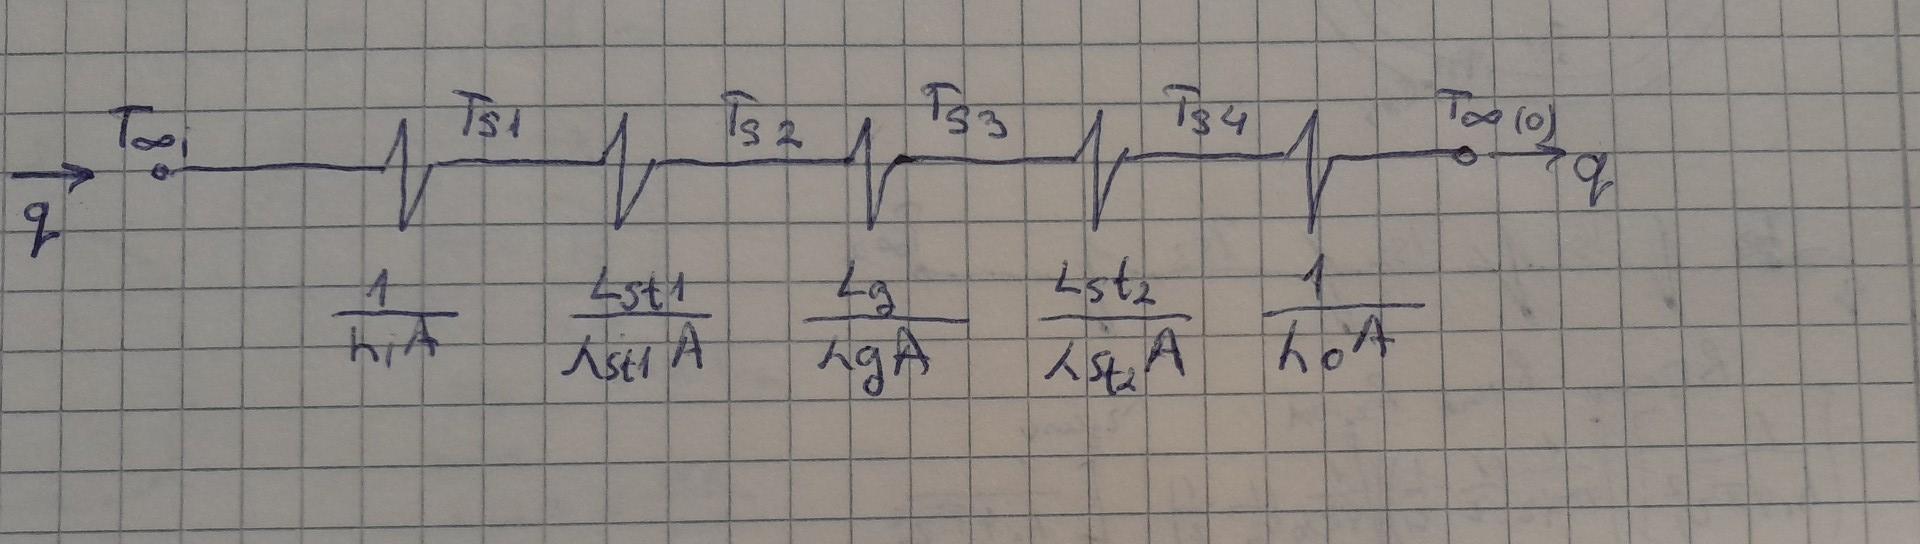 T∞,i Ts1 Ts2 Ts3 Ts4 T∞(0)
q q
1/hiA Lst1/λst1A Lg/λgA Lst2/λst2A 1/hoA